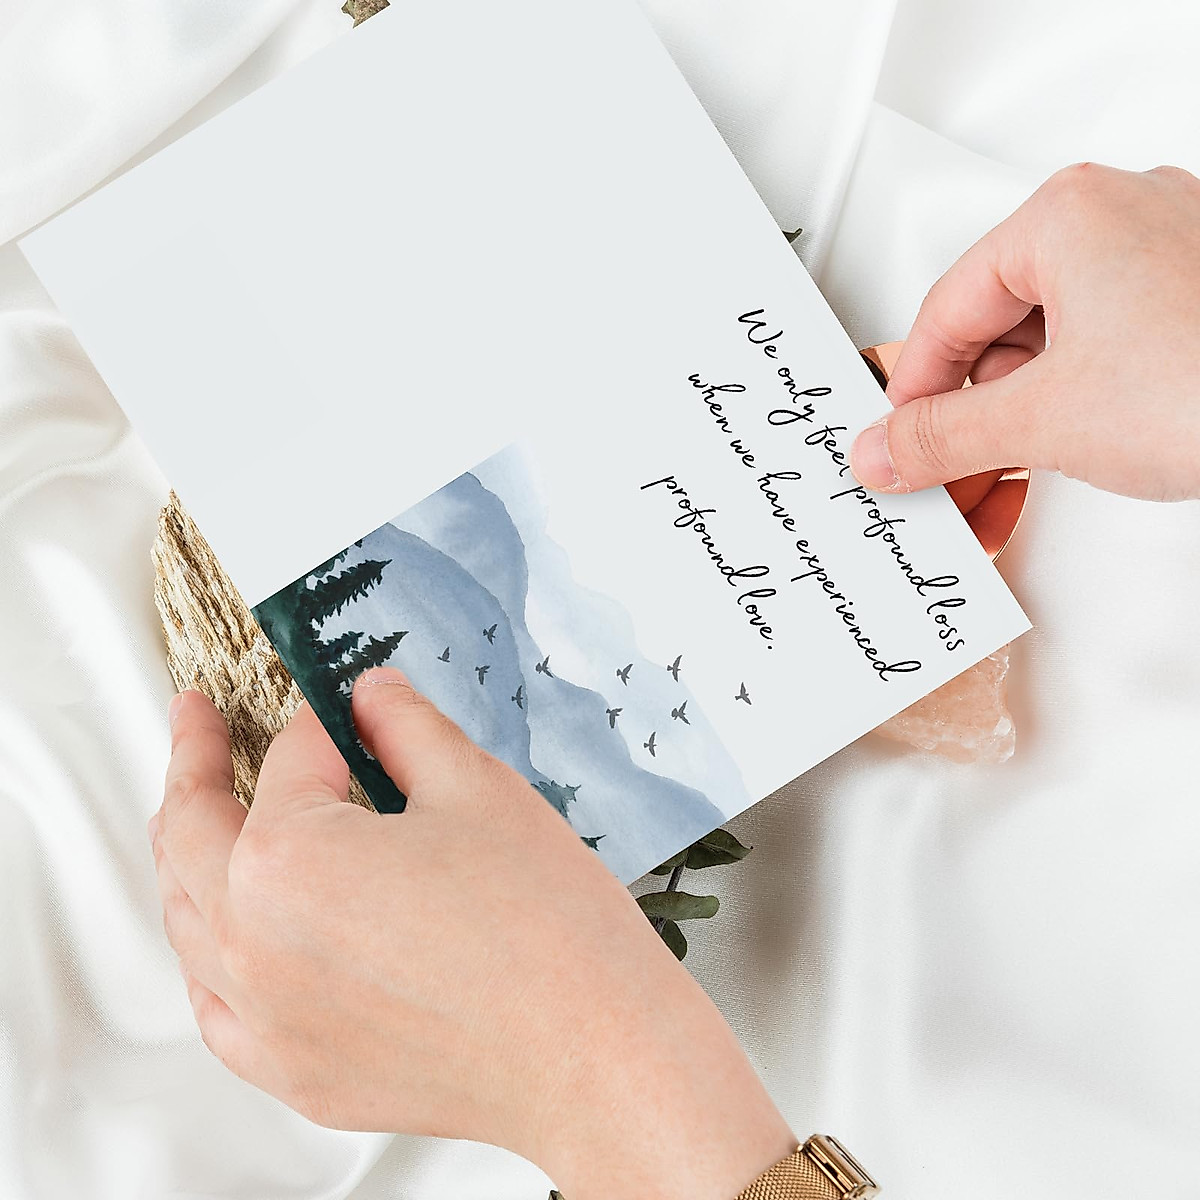 We only feel profound loss
when we have experienced
profound love.